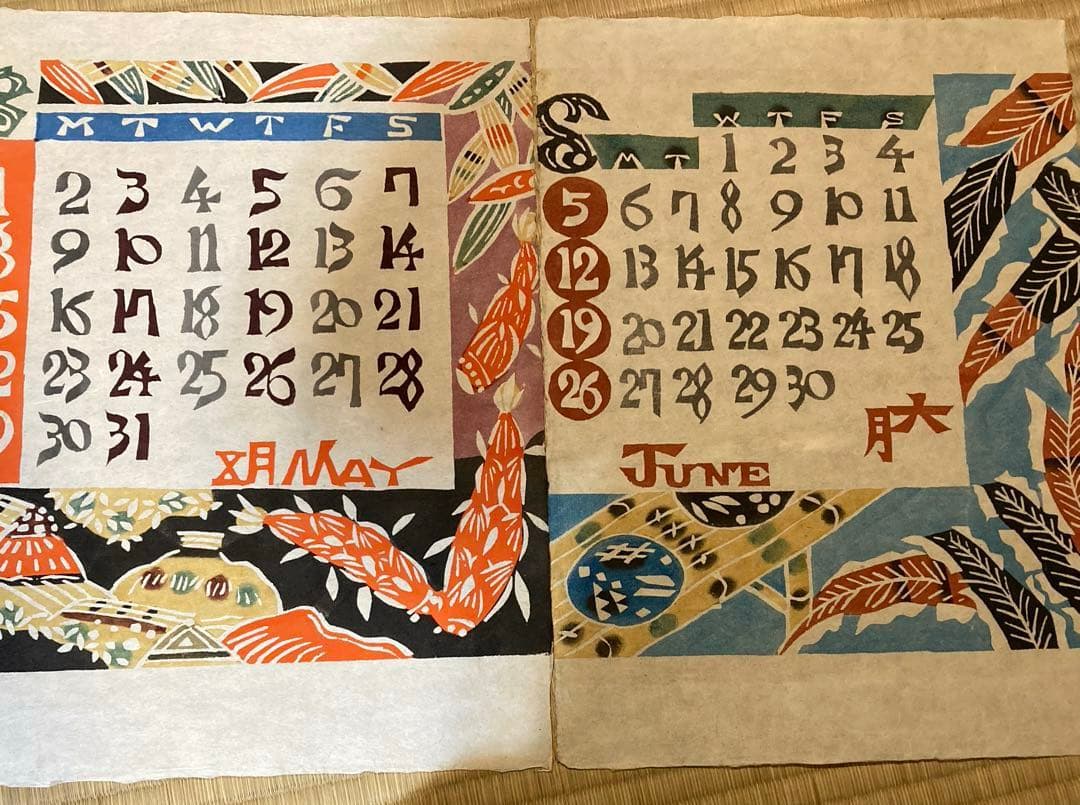 M T W T F S
2 3 4 5 6 7
9 10 11 12 13 14
16 17 18 19 20 21
23 24 25 26 27 28
30 31
五月 MAY
S M T W T F S
1 2 3 4
5 6 7 8 9 10 11
12 13 14 15 16 17 18
19 20 21 22 23 24 25
26 27 28 29 30
六月
JUNE